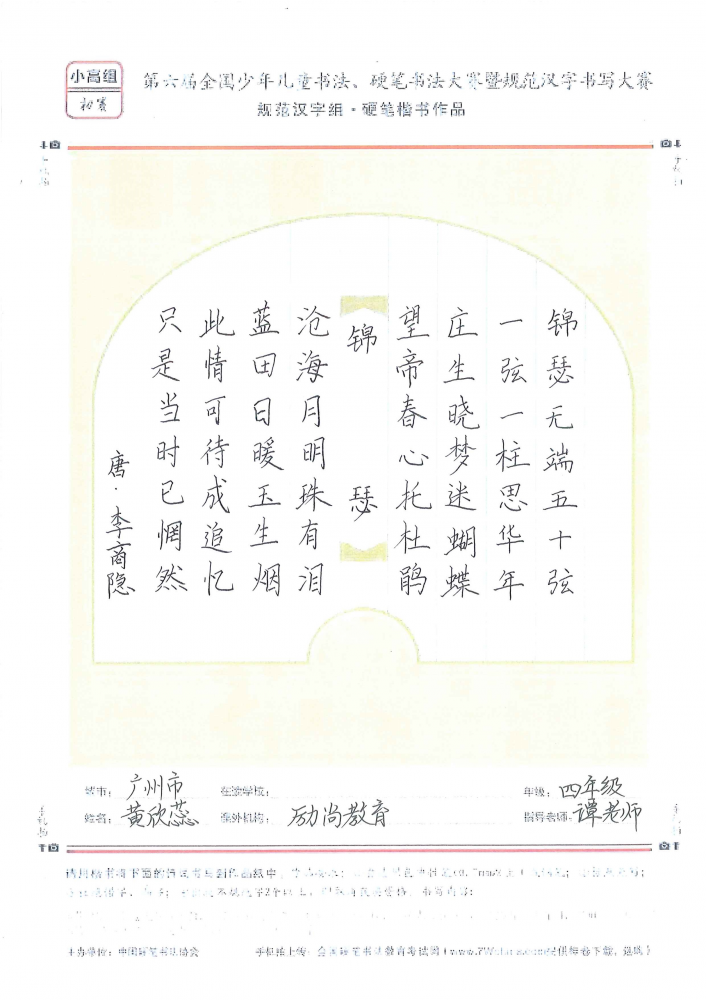 小高组
初赛
第六届全国少年儿童书法、硬笔书法大赛暨规范汉字书写大赛
规范汉字组·硬笔楷书作品
锦瑟无端五十弦
一弦一柱思华年
庄生晓梦迷蝴蝶
望帝春心托杜鹃
锦瑟
沧海月明珠有泪
蓝田日暖玉生烟
此情可待成追忆
只是当时已惘然
唐·李商隐
城市： 广州市 在读学校： 年级： 四年级
姓名： 黄欣蕊 课外机构： 励尚教育 指导老师： 谭老师
主办单位：中国硬笔书法协会